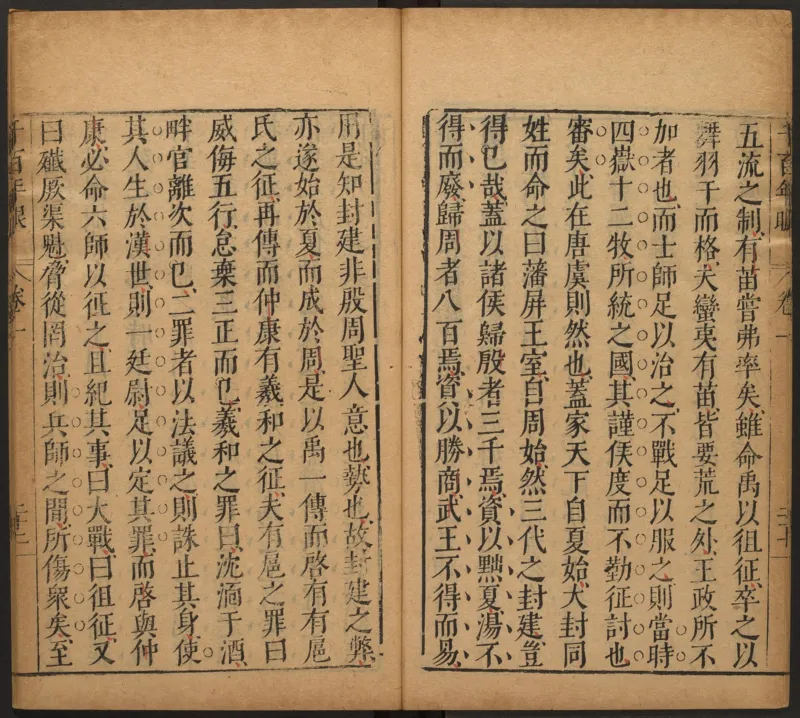 五流之制有苗嘗弗率矣雖命禹以徂征卒之以
舞羽干而格夫蠻夷有苗皆要荒之外王政所不
加者也而士師足以治之不戰足以服之則當時
四嶽十二牧所統之國其謹侯度而不勤征討也
審矣此在唐虞則然也蓋家天下自夏始大封同
姓而命之曰藩屏王室自周始然三代之封建豈
得已哉蓋以諸侯歸殷者三千焉資以黜夏湯不
得而廢歸周者八百焉資以勝商武王不得而易
用是知封建非殷周聖人意也勢也故封建之弊
亦遂始於夏而成於周是以禹一傳而啓有有扈
氏之征再傳而仲康有羲和之征夫有扈之罪曰
威侮五行怠棄三正而已羲和之罪曰沈湎于酒
畔官離次而已二罪者以法議之則誅止其身使
其人生於漢世則一廷尉足以定其罪而啓與仲
康必命六師以征之且紀其事曰大戰曰徂征又
曰殲厥渠魁脅從罔治則兵師之間所傷衆矣至
千百年眼
卷一